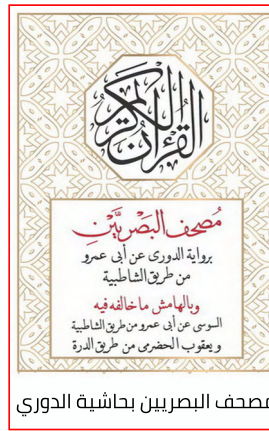 القرآن الكريم
مصحف البصريين
برواية الدوري عن أبي عمرو
من طريق الشاطبية
وبالهامش ما خالفه فيه
السوسي عن أبي عمرو من طريق الشاطبية
ويعقوب الحضرمي من طريق الدرة
مصحف البصريين بحاشية الدوري